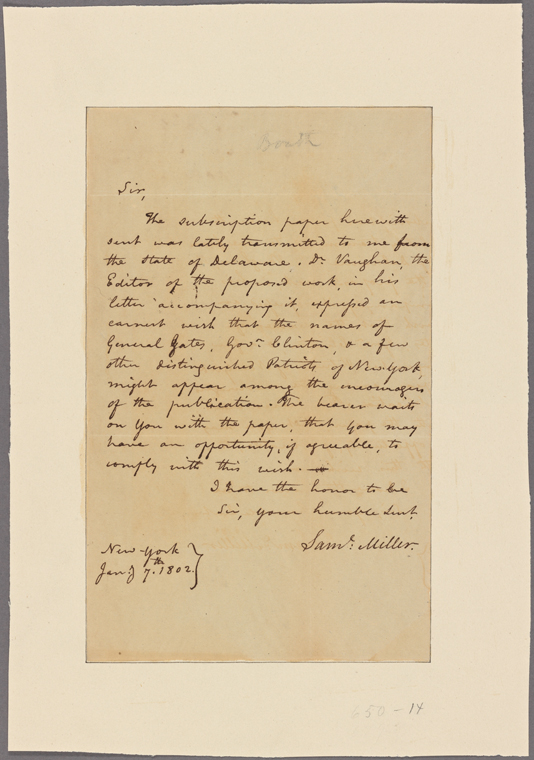 Sir,
The subscription paper herewith
sent was lately transmitted to me from
the State of Delaware. Dr. Vaughan, the
Editor of the proposed work, in his
letter accompanying it, expressed an
earnest wish that the names of
General Gates, Govr. Clinton, & a few
other distinguished Patriots of New-York,
might appear among the encouragers
of the publication. The bearer waits
on you with the paper, that you may
have an opportunity, if agreeable, to
comply with this wish.
I have the honor to be
Sir, your humble Servt.
Saml. Miller.
New-York
Jany. 7th. 1802.
650-14